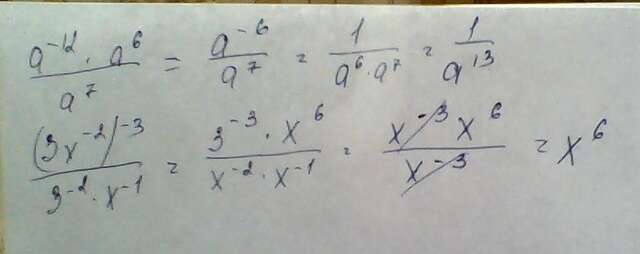 a⁻¹² · a⁶ / a⁷ = a⁻⁶ / a⁷ = 1 / a⁶·a⁷ = 1 / a¹³
(3x⁻²)⁻³ / 3⁻²·x⁻¹ = 3⁻³·x⁶ / x⁻²·x⁻¹ = x⁻³ x⁶ / x⁻³ = x⁶